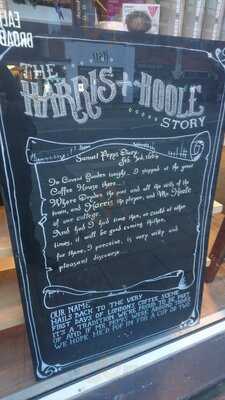 THE
HARRIS + HOOLE
STORY
Samuel Pepys Diary
Feb 3rd, 1664
In Covent Garden tonight... I stopped at the great
Coffee House there...
Where Dryden the poet and all the wits of the
town, and Harris the player, and Mr. Hoole
of our college.
And had I had time then, or could at other
times, it will be good coming thither,
for there, I perceive, is very witty and
pleasant discourse
OUR NAME
HAILS BACK TO THE VERY
FIRST DAYS OF LONDON'S COFFEE SCENE
IT'S A TRADITION WE'RE PROUD TO BE PART
OF AND IF MR PEPYS WERE AROUND TODAY
WE HOPE HE'D POP IN FOR A CUP OR TWO